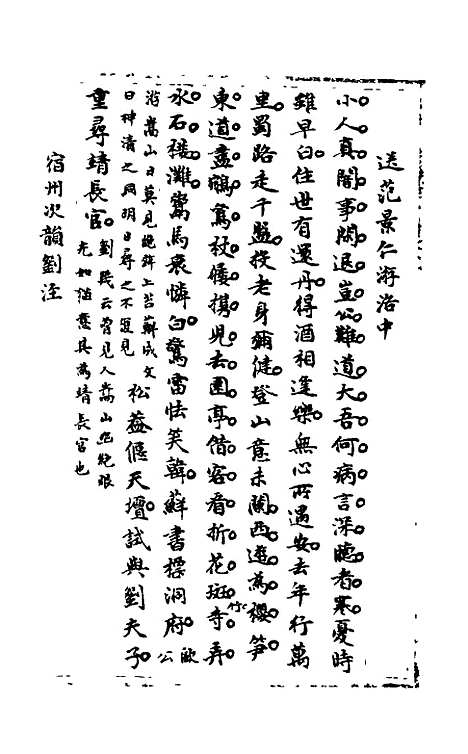 送范景仁游洛中
小人真闇事閑退豈公難道大吾何病言深聽者寒憂時
雖早白住世有還丹得酒相逢樂無心所遇安去年行萬
里蜀路走千盤投老身彌健登山意未闌西遊為櫻筍
東道盡鵷鸞杖屨攜兒去園亭借客看折花斑竹寺弄
水石樓灘鬻馬衰憐白驚雷怯笑韓蘚書標洞府歐公
游嵩山日莫見絕壁上苔蘚成文
曰神清之洞明日尋之不復見
松蓋偃天壇試與劉夫子
重尋靖長官
劉几云曾見人嵩山幽絕眼
光如猫意其為靖長官也
宿州次韻劉涇